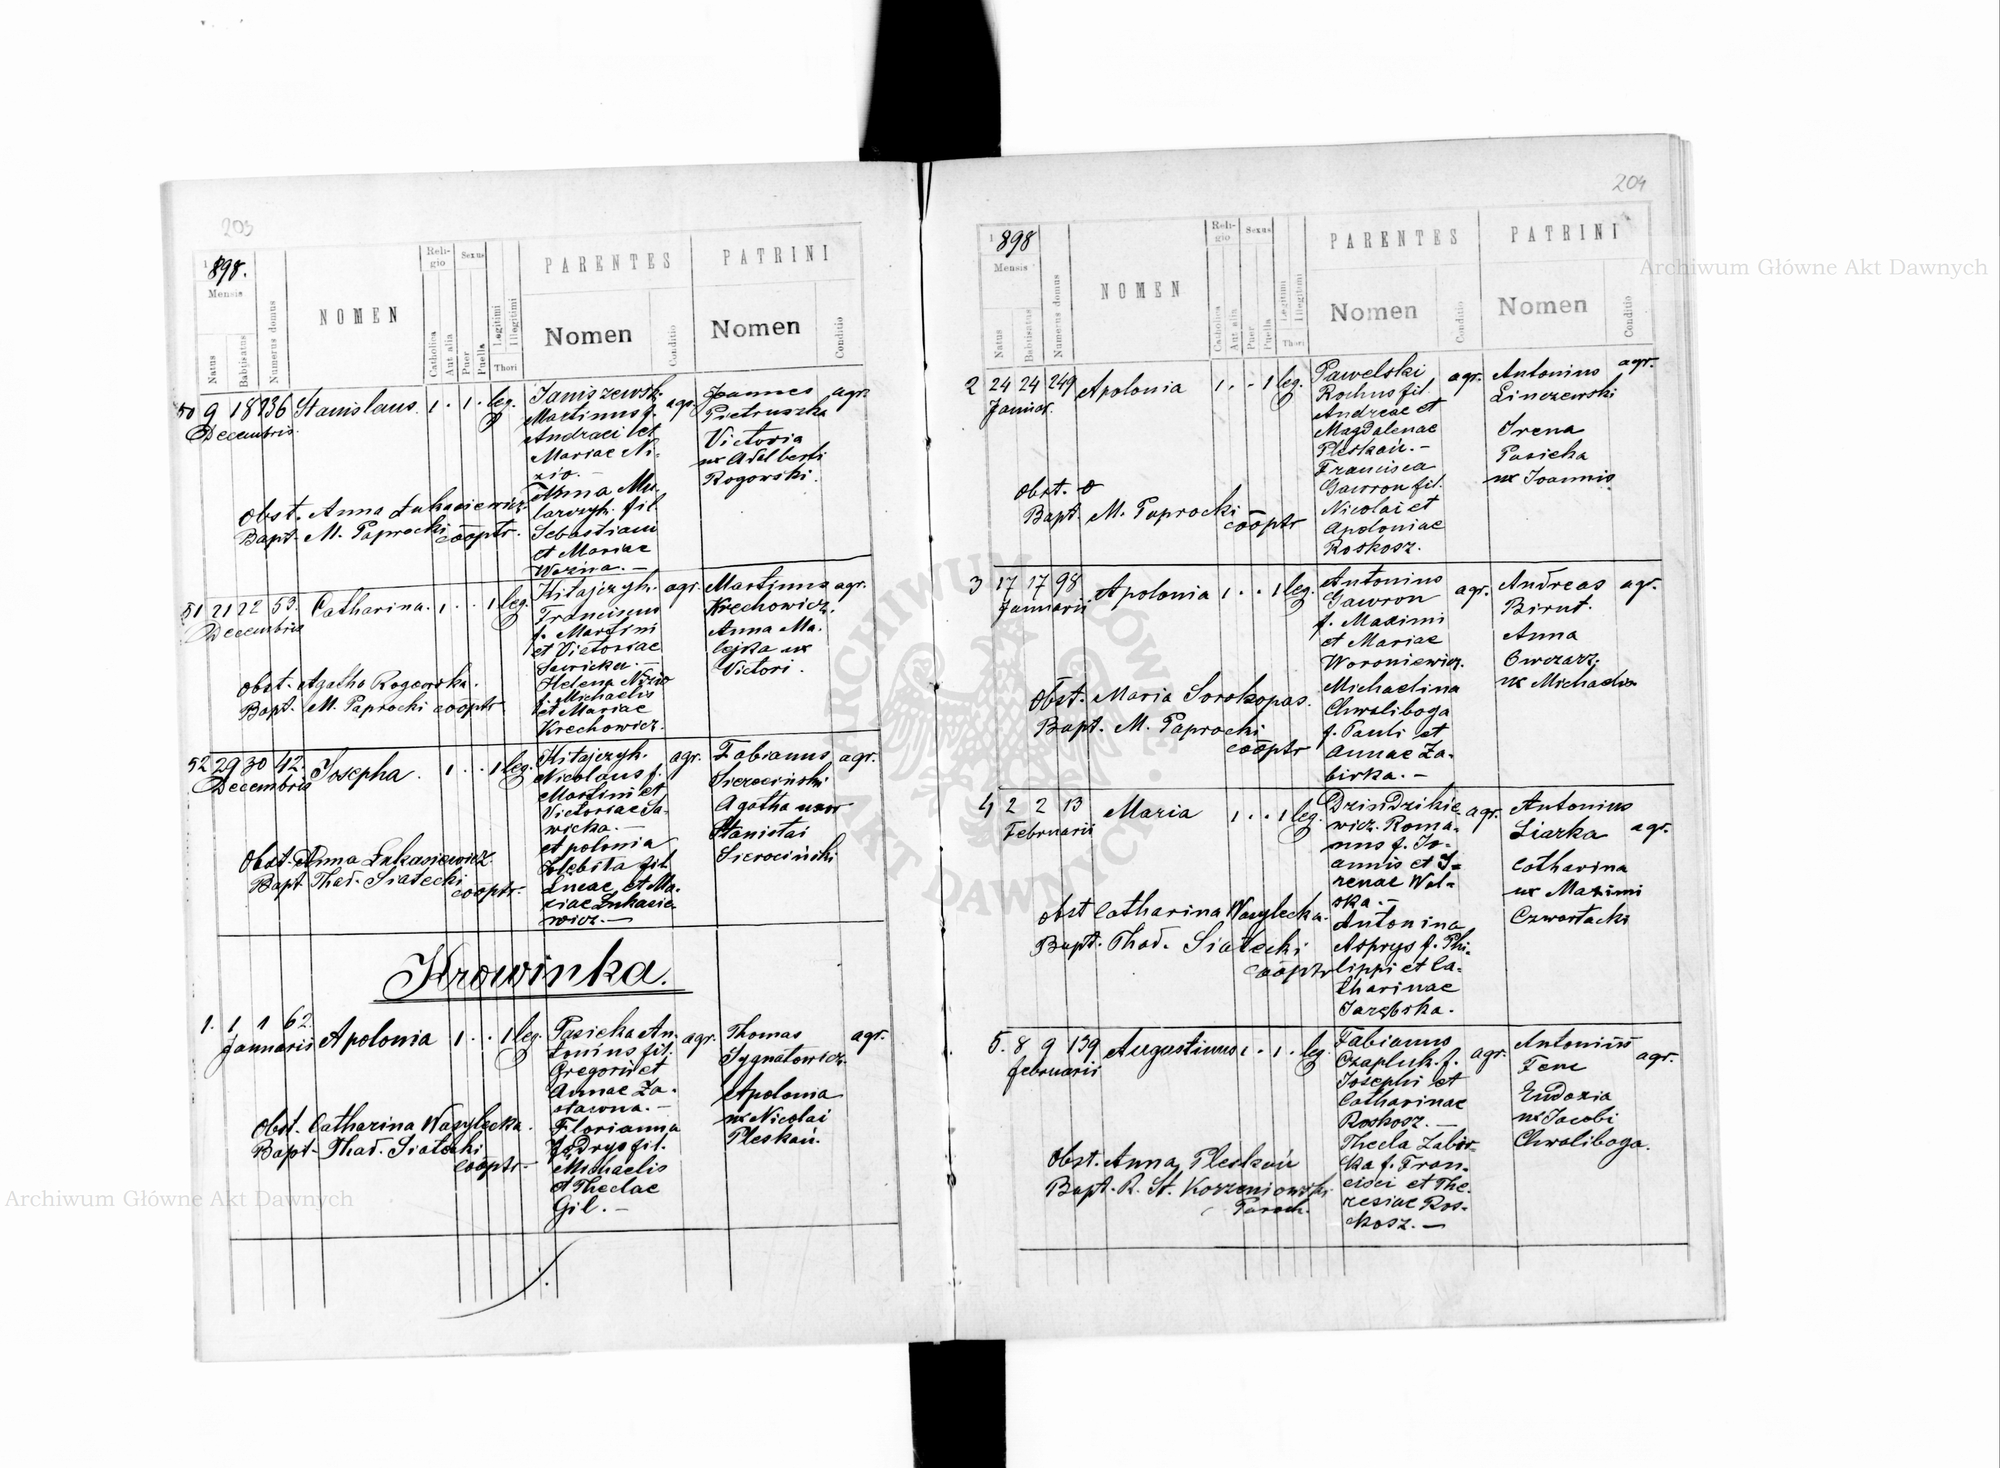 203
1898.
Mensis
Natus
Babtisatus
Numerus domus
NOMEN
Religio
Catholica
Aut alia
Sexus
Puer
Puella
Legitimi
Illegitimi
Thori
PARENTES
Nomen
Conditio
PATRINI
Nomen
Conditio
50 9 18 136 Stanislaus. 1 . 1 . leg.
Decembris.
Janiszewski
Martinus f. agr.
Andraei et
Mariae Ni-
zio. —
Anna Mu-
larczyk. fil
Sebastiani
et Mariae
Woźna. —
Joannes agr.
Pietruszka
Victoria
ux Adalberti
Rogowski.
Obst. Anna Łukasiewicz
Bapt. M. Paprocki cooptr.
51 21 22 53. Catharina. 1 . . 1 leg.
Decembris
Kitajczyk. agr.
Franciscus
f. Martini
et Victoriae
Sawicka. —
Helena Nizio
f. Michaelis
et Mariae
Krechowicz.
Martinus agr.
Krechowicz.
Anna Ma-
lejka ux
Victori.
Obst. Agatha Rogowska.
Bapt. M. Paprocki cooptr
52 29 30 42. Josepha. 1 . . 1 leg.
Decembris
Kitajczyk. agr.
Nicolaus f.
Martini et
Victoriae Sa-
wicka. —
et polonia
fil.
Lucae et Ma-
riae Łukasie-
wicz. —
Fabianus agr.
Sierociński
Agatha uxor
Stanislai
Sierociński
Obst. Anna Łukasiewicz
Bapt Thad. Siatecki
cooptr.
Krowinka.
1. 1 1 62.
Januarii Apolonia 1 . . 1 leg.
Pasieka An- agr.
tonius fil.
Gregorii et
Annae Za-
stawna. —
Florianna
Jędrys fil.
Michaelis
et Theclae
Gil. —
Thomas agr.
Sygnatowicz.
Apolonia
ux Nicolai
Pleskań.
Obst. Catharina Wasylecka.
Bapt. Thad. Siatecki
cooptr.
204
1898
Mensis
Natus
Babtisatus
Numerus domus
NOMEN
Religio
Catholica
Aut alia
Sexus
Puer
Puella
Legitimi
Illegitimi
Thori
PARENTES
Nomen
Conditio
PATRINI
Nomen
Conditio
2 24 24 249 Apolonia 1 . - 1 leg.
Januar.
Pawelski agr.
Rochus fil.
Andreae et
Magdalenae
Pleskań. —
Francisca
Gawron fil.
Nicolai et
Apoloniae
Roskosz.
Antonius agr.
Linczewski
Irena
Pasieka
ux Joannis
Obst. 0
Bapt. M. Paprocki
cooptr
3 17 17 98 Apolonia 1 . . 1 leg.
Januarii
Antonius agr.
Gawron
f. Maximi
et Mariae
Woroniewicz.
Michaelina
Chwaliboga
f. Pauli et
Annae Za-
birka. —
Andreas agr.
Birut.
Anna
Owczarz.
ux Michaelis
Obst. Maria Sorokopas.
Bapt. M. Paprocki
cooptr
4 2 2 13 Maria 1 . . 1 leg.
Februarii
Dzindzikie- agr.
wicz. Roma-
nus f. Jo-
annis et I-
renae Wol-
ska. —
Antonina
Asprys f. Phi-
lippi et Ca-
tharinae
Jarębska.
Antonius
Siarka agr.
Catharina
ux Maximi
Czwartacki
Obst Catharina Wasylecka.
Bapt. Thad. Siatecki
cooptr
5. 8 9 139 Augustinus 1 . 1 . leg.
Februarii
Fabianus agr.
Czapluk. f.
Josephi et
Catharinae
Roskosz. —
Thecla Zabir-
ka f. Fran-
cisci et The-
resiae Ros-
kosz. —
Antonius agr.
Eudoxia
ux Jacobi
Chwaliboga.
Obst. Anna Pleskań
Bapt. R. St. Korzeniowski
Paroch.
Archiwum Główne Akt Dawnych
Archiwum Główne Akt Dawnych
ARCHIWUM GŁÓWNE AKT DAWNYCH